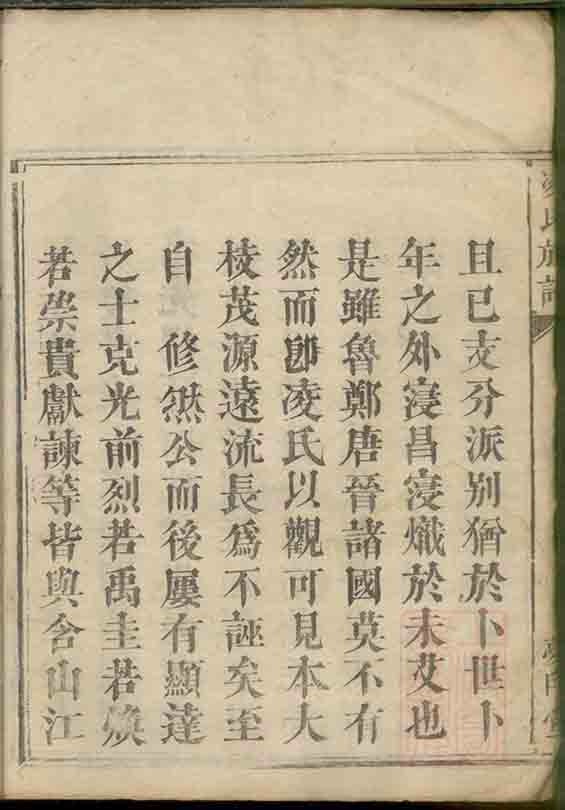 且已支分派别猶於卜世卜
年之外寖昌寖熾於未艾也
是雖魯鄭唐晉諸國莫不有
然而卽凌氏以觀可見本大
枝茂源遠流長爲不誣矣至
自 修然公而後屢有顯達
之士克光前烈若禹圭若煥
若崇貴獻諫等皆與含山江